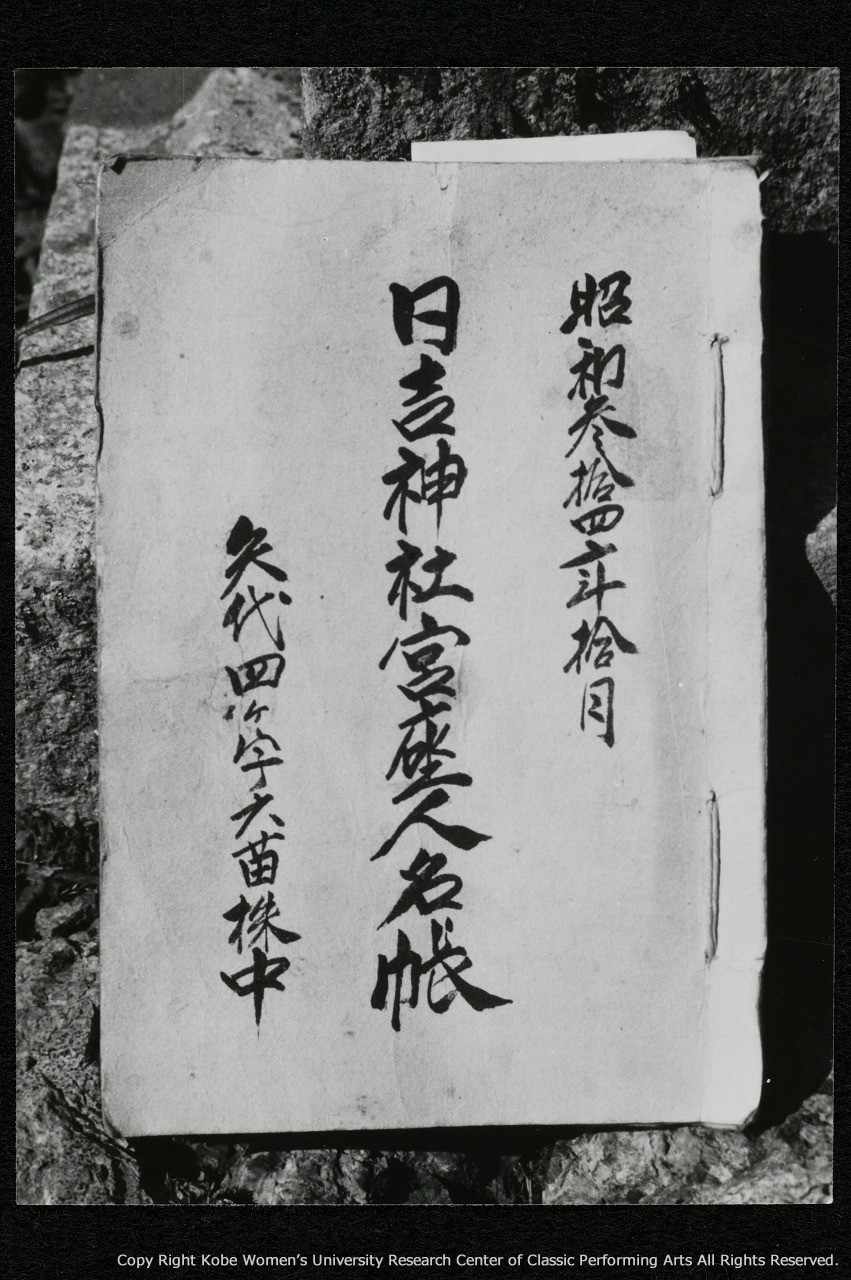 昭和参拾四年拾月
日吉神社宮座人名帳
矢代四ヶ字六苗株中
Copy Right Kobe Women's University Research Center of Classic Performing Arts All Rights Reserved.